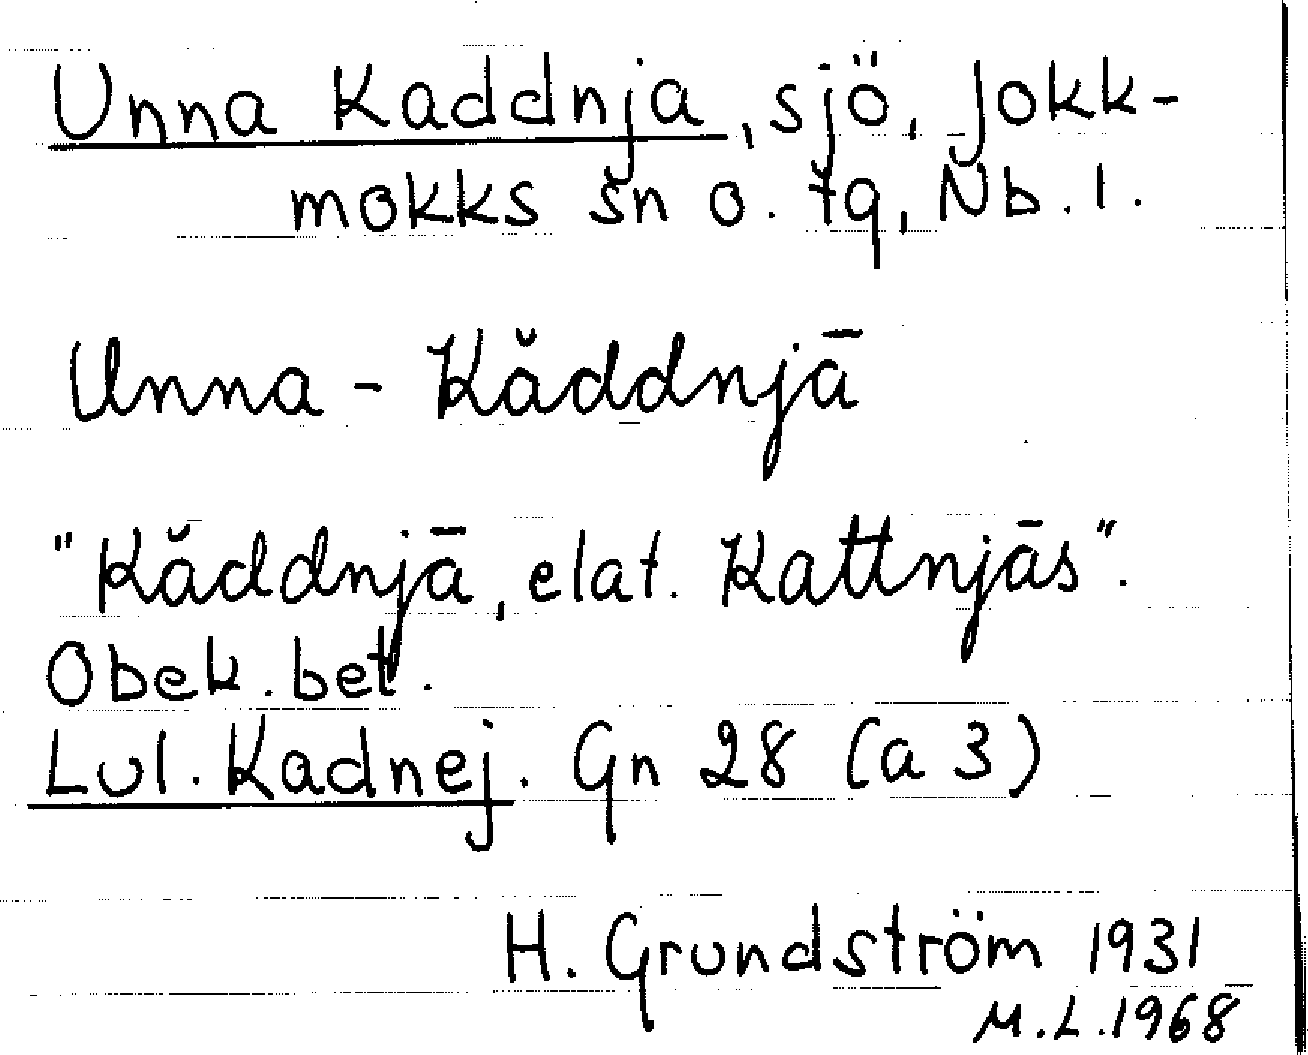 Unna Kaddnja, sjö, Jokk-
mokks sn o. tg, Nb. l.
Unna - Kăddnjā
"Kăddnjā, elat. Kattnjās".
Obek. bet.
Lul. Kadnej. Gn 28 (a 3)
H. Grundström 1931
M.L. 1968